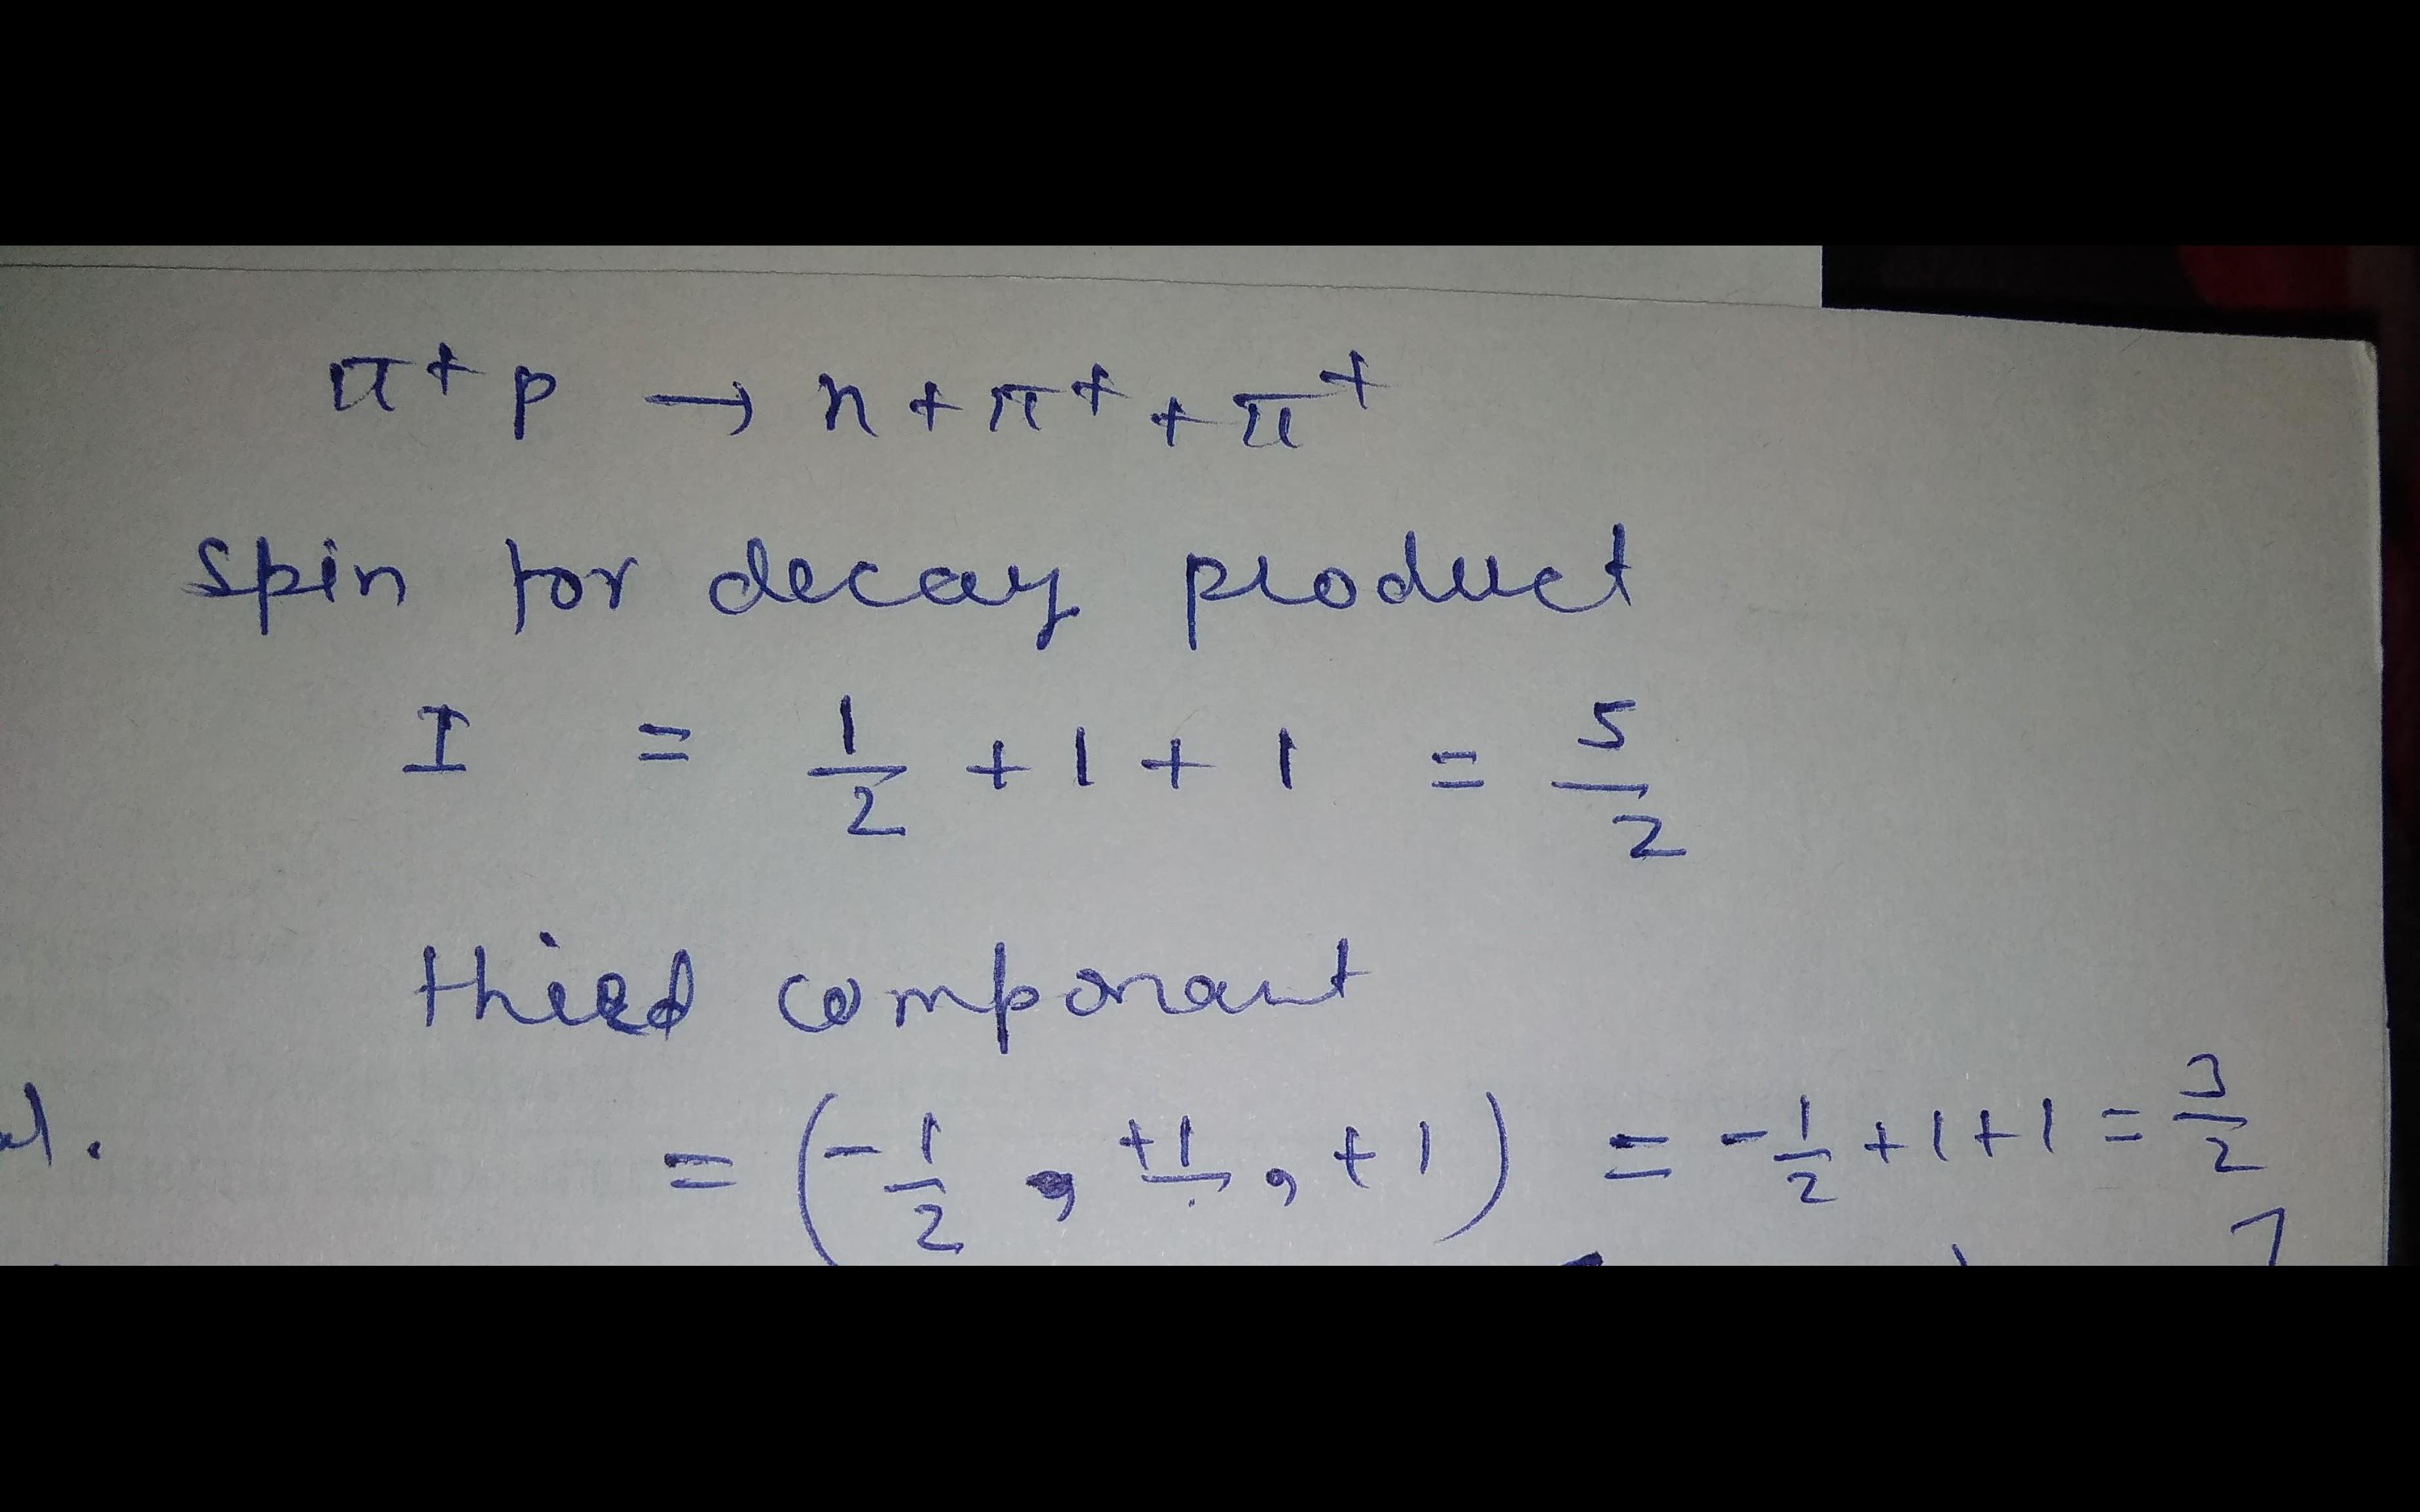 π⁺ p → n + π⁺ + π⁺
spin for decay product
I = 1/2 + 1 + 1 = 5/2
third componant
= (-1/2, +1, +1) = -1/2 + 1 + 1 = 3/2